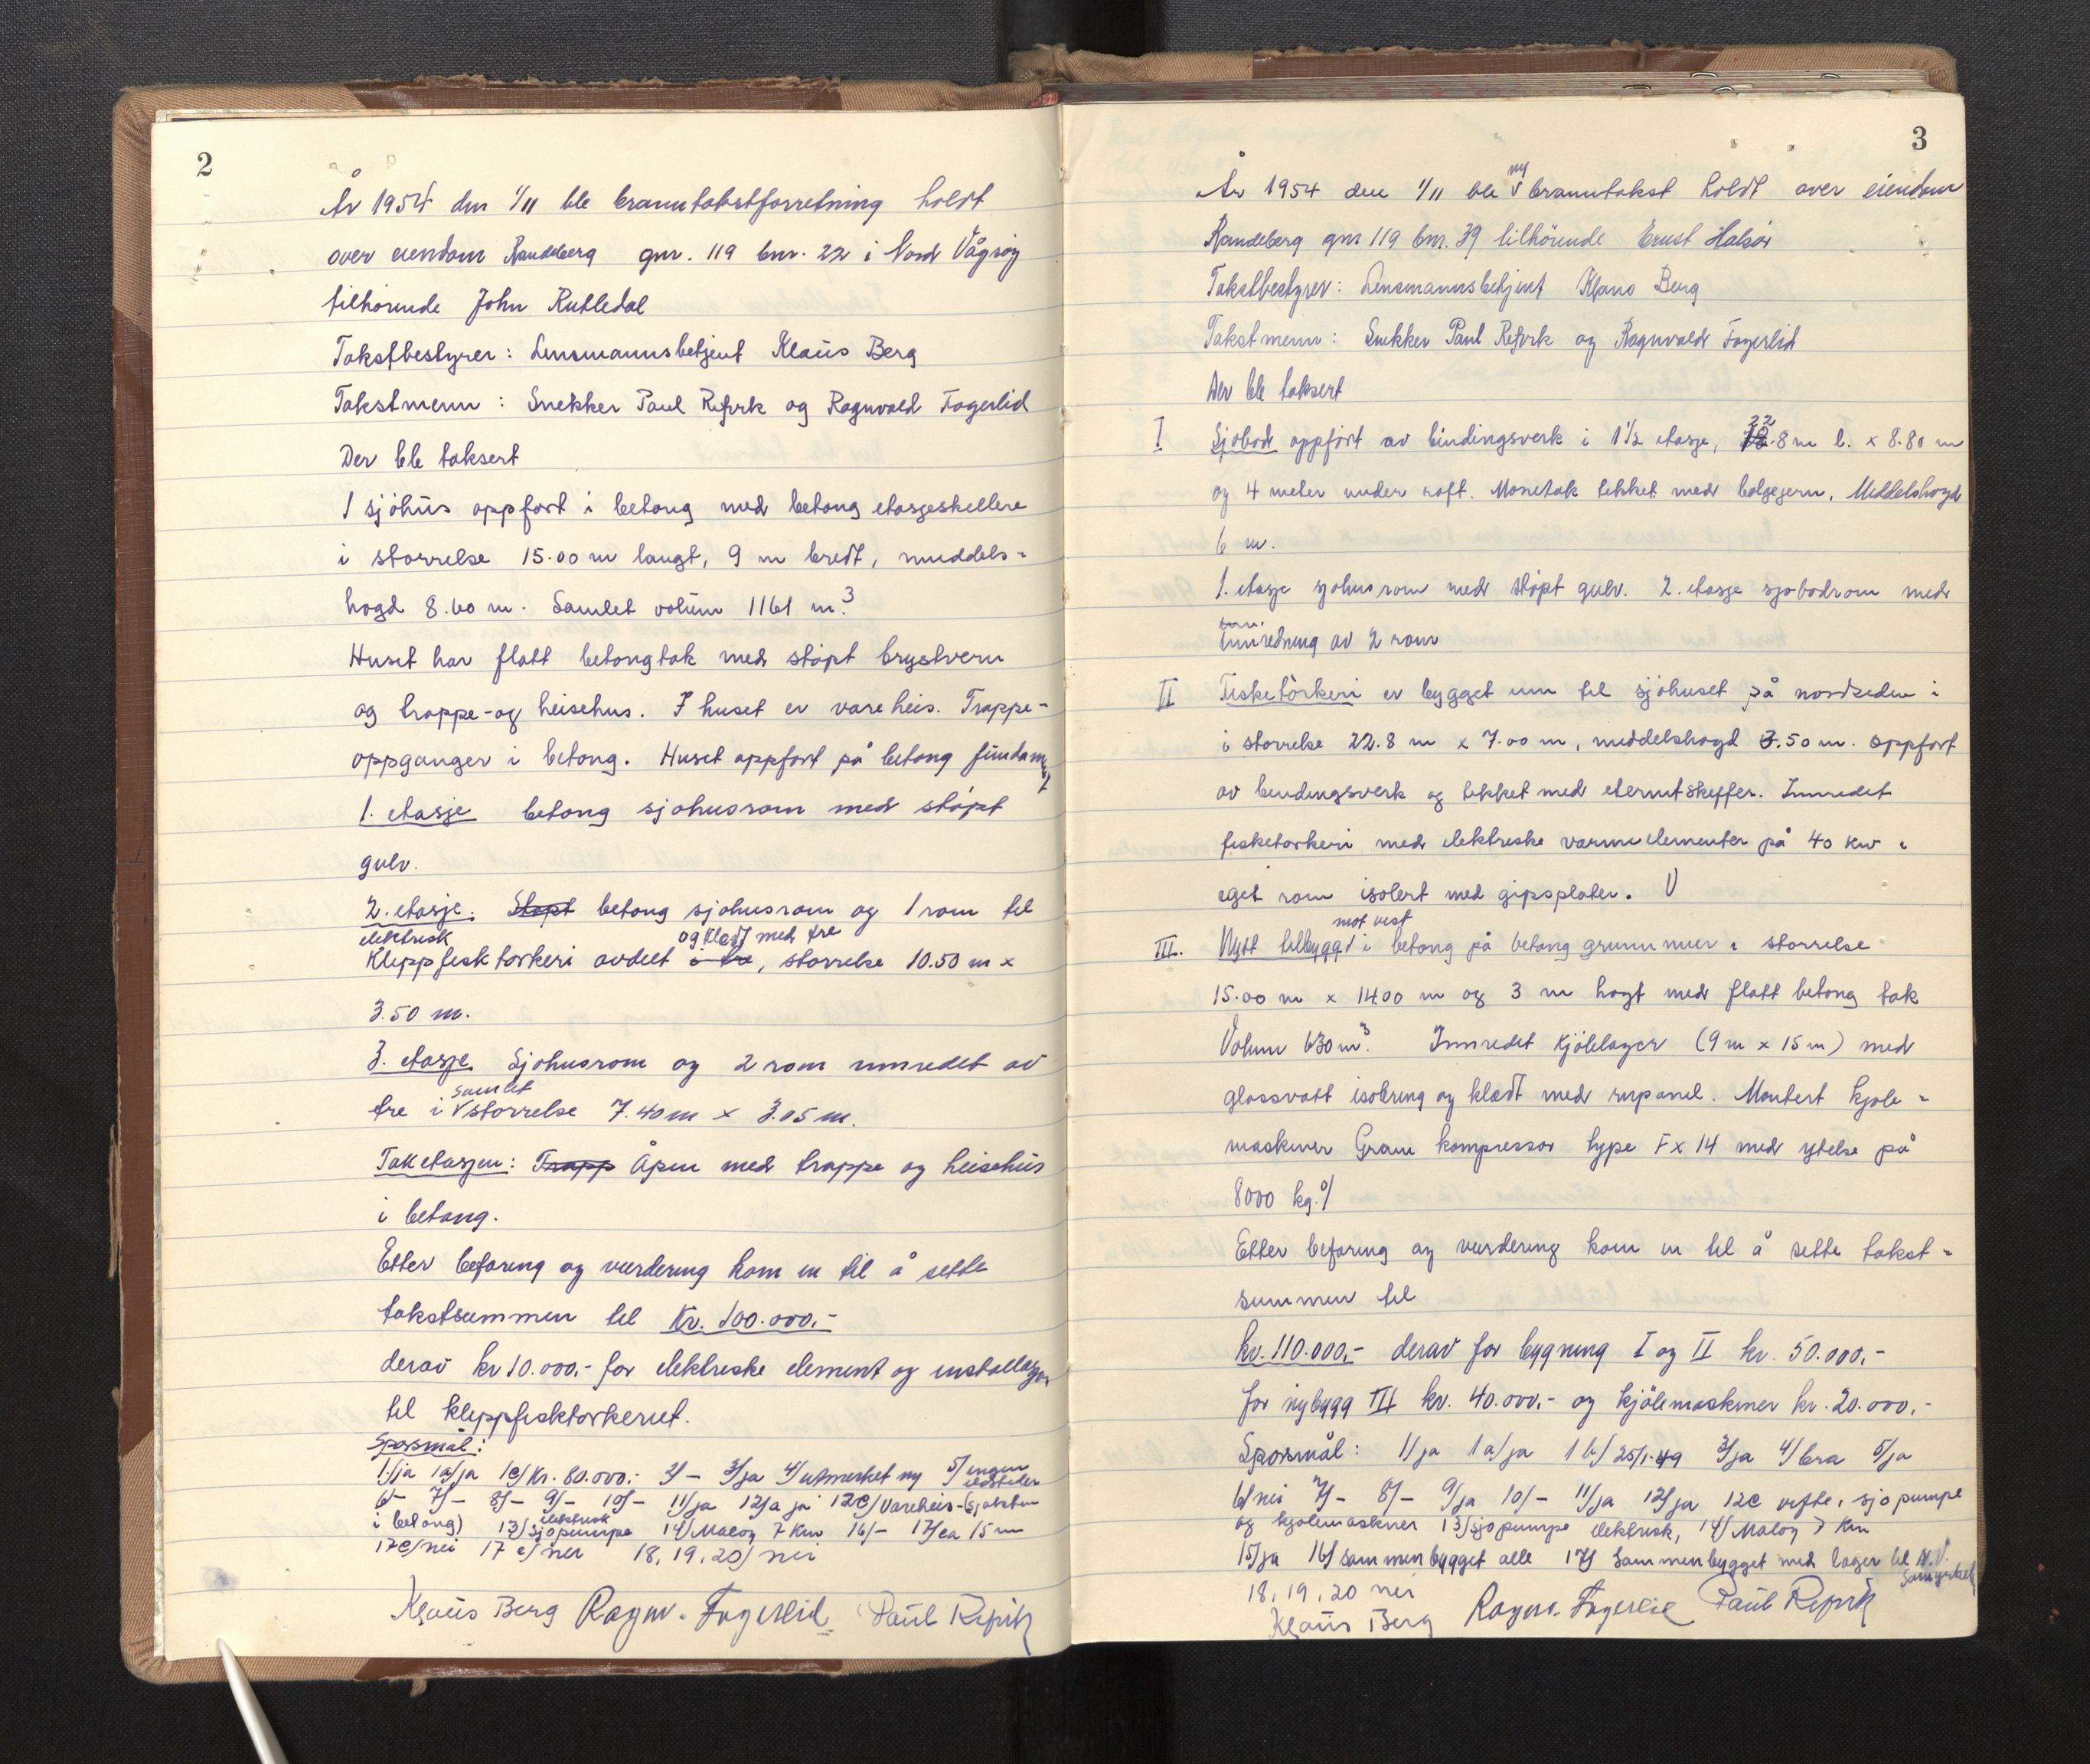 2
År 1954 den 1/11 ble branntakstforretning holdt
over eiendom Randeberg gnr. 119 bnr. 22 i Nord Vågsøy
tilhørende John Rutledal
Takstbestyrer: Lensmannsbetjent Klaus Berg
Takstmenn: Snekker Paul Refvik og Ragnvald Fagerlid
Der ble taksert
1 sjöhus oppført i betong med betong etasjeskillere
i størrelse 15.00 m langt, 9 m bredt, middels-
høgd 8.60 m. Samlet volum 1161 m.3
Huset har flatt betongtak med støpt brystvern
og trappe- og heisehus. I huset er vareheis. Trappe-
oppganger i betong. Huset oppført på betong fundament
1. etasje betong sjøhusrom med støpt
gulv.
2. etasje: Støpt betong sjøhusrom og 1 rom til
elektrisk og kledt med tre
Klippfisktørkeri avdelt i tre, størrelse 10.50 m x
3.50 m.
3. etasje. Sjøhusrom og 2 rom innredet av
samlet
tre i størrelse 7.40 m x 3.05 m.
Taketasjen: Trapp Åpen med trappe og heisehus
i betong.
Etter befaring og vurdering kom en til å sette
takstsummen til Kr. 100.000.-
derav kr 10.000.- for elektriske element og installasjon
til klippfisktørkeriet.
Spørsmål:
1/ja 1a/ja 1c/Kr. 80.000.- 2/- 3/ja 4/utmerket ny 5/ingen ildsteder
6/- 7/- 8/- 9/- 10/- 11/ja 12/a ja 12c/Vareheis-(sjakten
elektrisk
i betong) 13/sjøpumpe 14/Måløy 7 km 16/- 17/ca 15 m
17c/nei 17 e/nei 18, 19, 20/nei
Klaus Berg Ragnv. Fagerlid Paul Refvik
3
ny
År 1954 den 1/11 ble branntakst holdt over eiendom
Randeberg gnr 119 bnr. 39 tilhörende Ernst Halsör
Takstbestyrer: Lensmannsbetjent Klaus Berg
Takstmenn: Snekker Paul Refvik og Ragnvald Fagerlid
Der ble taksert
I Sjøbod oppført av bindingsverk i 1 1/2 etasje, 22.8 m l. x 8.80 m
og 4 meter under raft. Mønetak tekket med bølgejern, Middelshøgd
6 m.
1. etasje sjøhusrom med støpt gulv. 2. etasje sjøbodrom med
innredning av 2 rom
II Fisketörkeri er bygget inn til sjøhuset på nordsiden i
i størrelse 22.8 m x 7.00 m, middelshøgd 3.50 m. Oppført
av bindingsverk og tekket med eternitskiffer. Innredet
fisketørkeri med elektriske varmeelementer på 40 Kw i
eget rom isolert med gipsplater.
mot vest
III. Nytt tilbygg i betong på betong grunnmur i størrelse
15.00 m x 14.00 m og 3 m høgt med flatt betong tak
Volum 630 m3. Innredet kjölelager (9 m x 15 m) med
glassvatt isolering og kledt med rupanel. Montert kjøle-
maskiner Gram kompressor type F x 14 med ytelse på
8000 kg.%
Etter befaring og vurdering kom en til å sette takst-
summen til
kr. 110.000.- derav for bygning I og II kr. 50.000.-
for nybygg III kr. 40.000.- og kjölemaskiner kr. 20.000.-
Spørsmål: 1/ja 1a/ja 1b/25/1-49 3/ja 4/bra 5/ja
6/nei 7/- 8/- 9/ja 10/- 11/ja 12/ja 12c vifte, sjøpumpe
og kjølemaskiner 13/sjøpumpe elektrisk, 14/Måløy 7 km
15/ja 16/sammenbygget alle 17/Sammenbygget med lager til N.V.
Samyrkelag
18, 19, 20 nei
Klaus Berg Ragnv. Fagerlid Paul Refvik